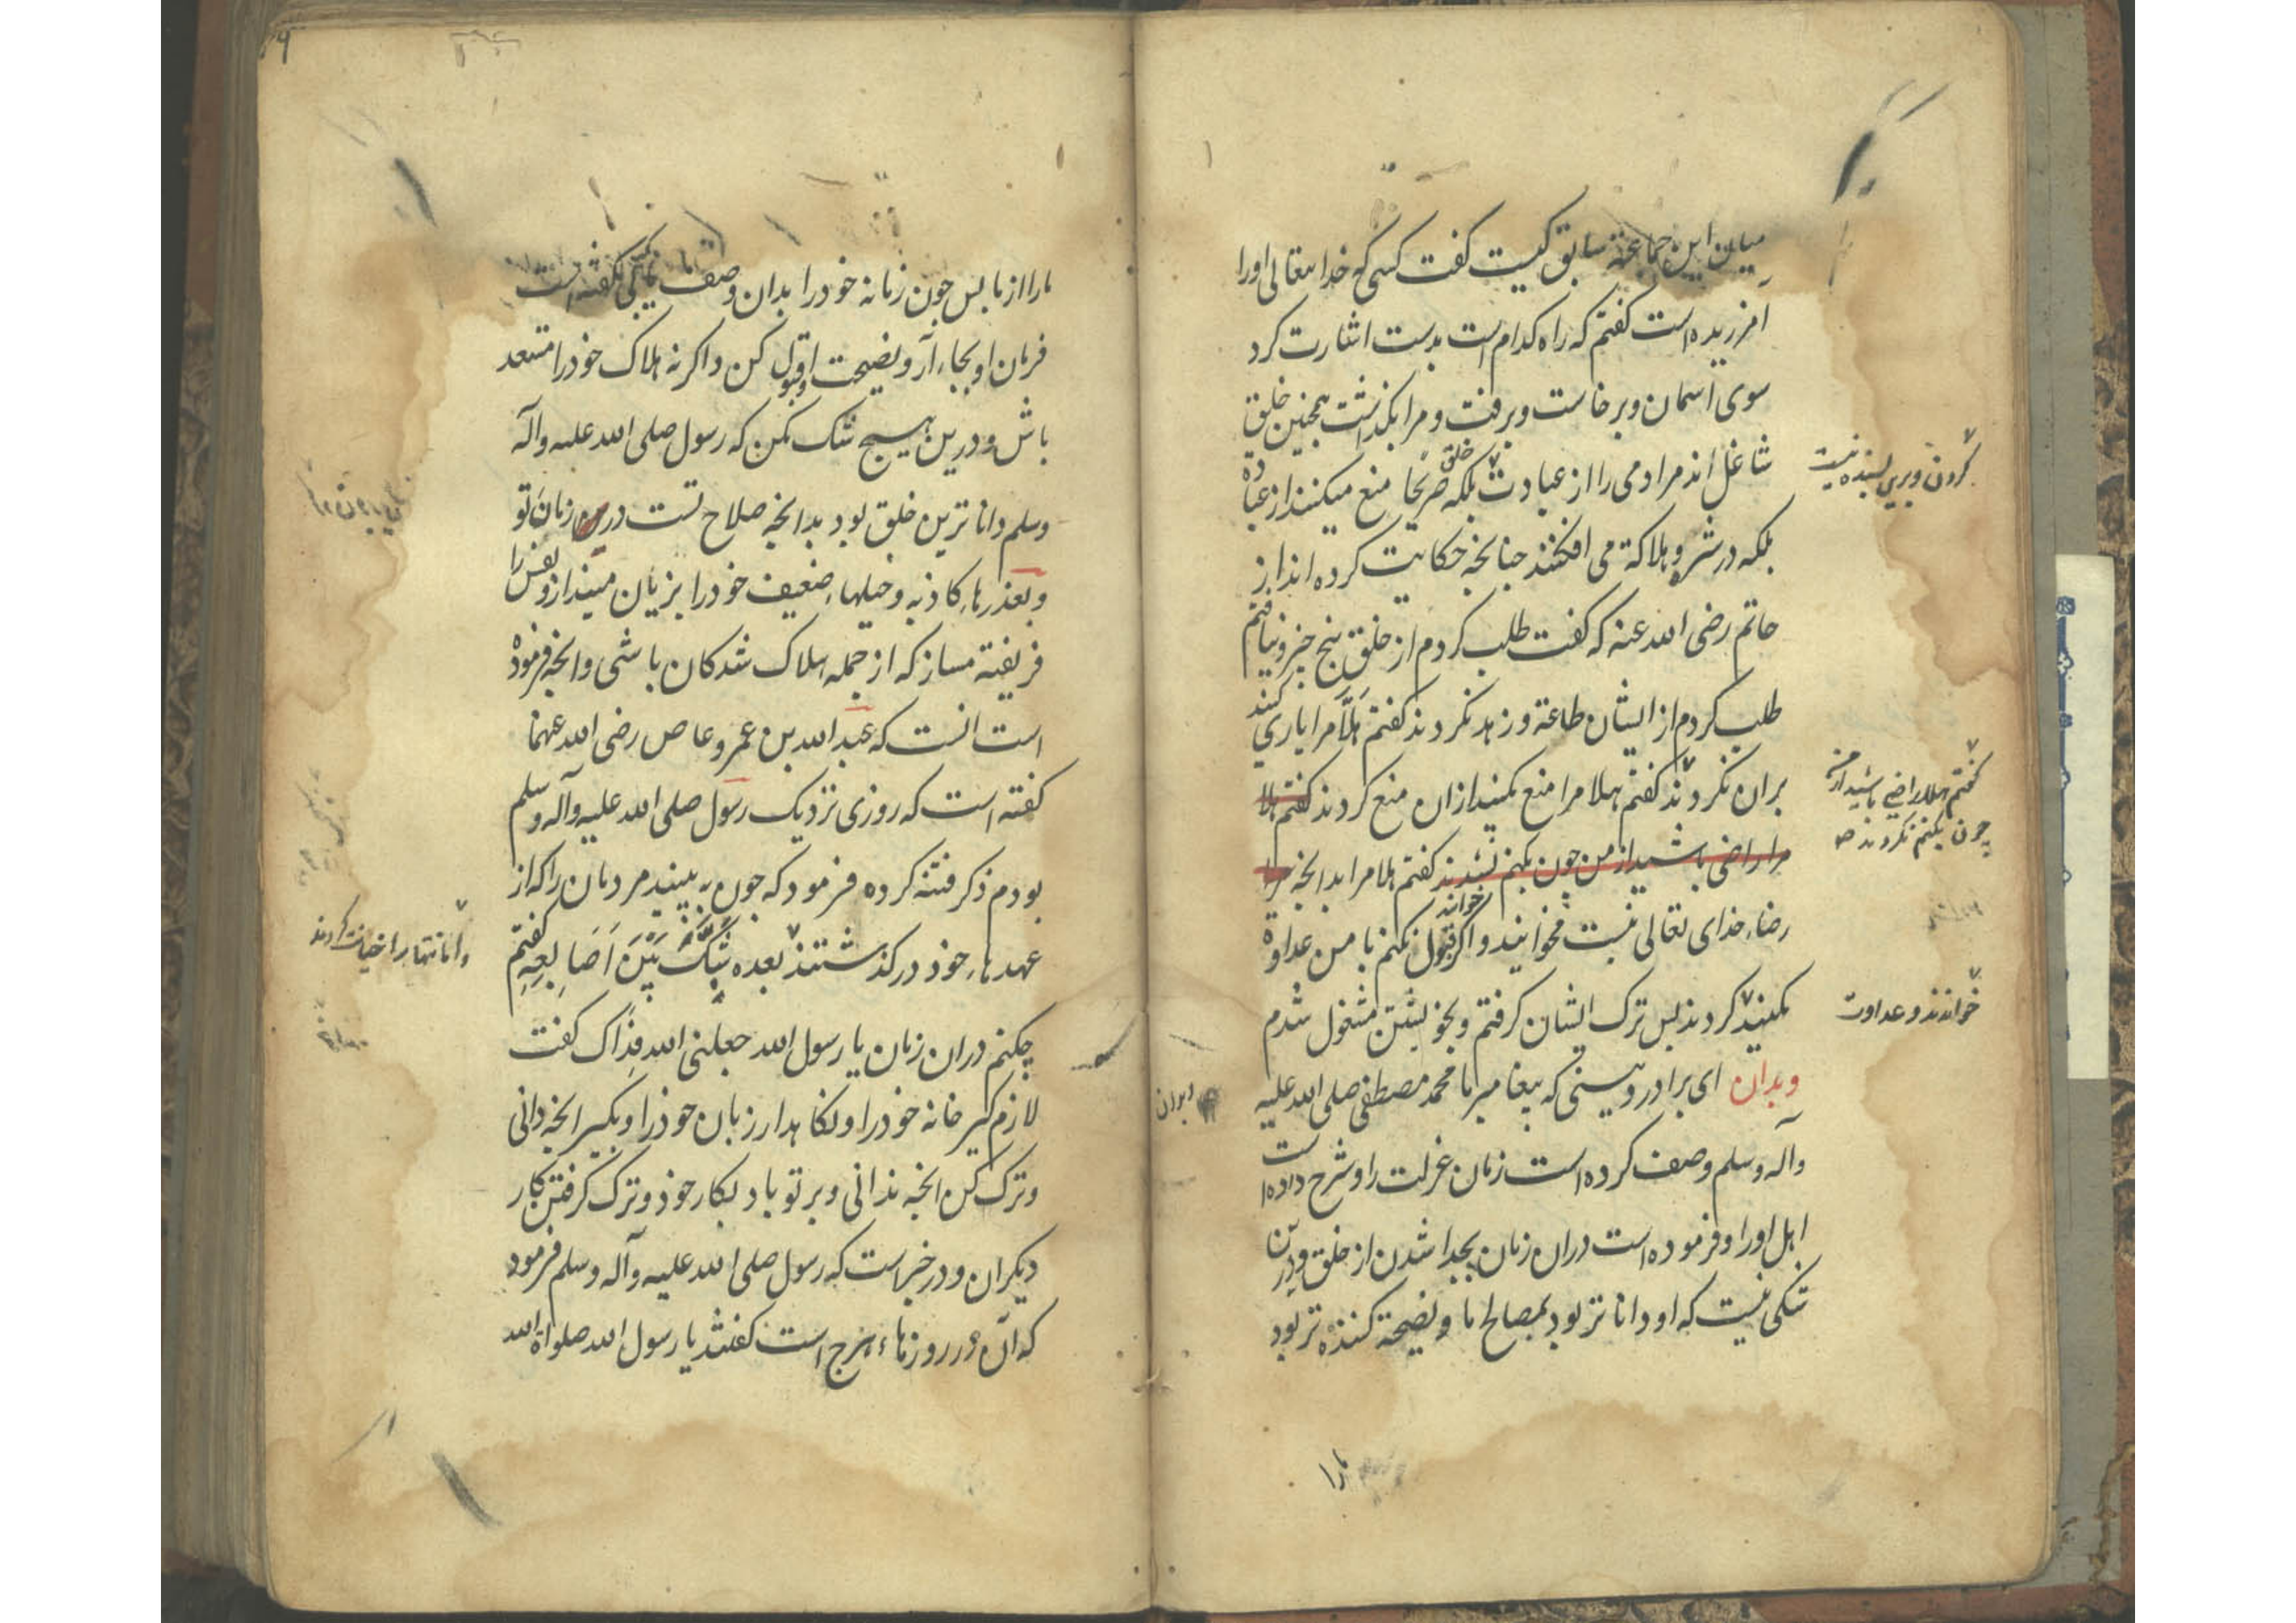 میان این جماعة سابق کیست کفت کسی که خدا تعالی اورا
آمرزیده است کفتم که راه کدام است بدست اشارت کرد
سوی اسمان و برخاست و برفت و مرا بکذاشت همچنین خلق
شاغل اند مرادمی را از عبادت بلکه خلق صریحا منع میکنند از عباده
کردن و برین بسنده نیست
بلکه در شر و هلاکة می افکنند چنانجه حکایت کرده اند از
حاتم رضی الله عنه که کفت طلب کردم از خلق پنج چیز و نیافتم
طلب کردم از ایشان طاعة و زهد نکردند کفتم هَلّا مرا یاری کنید
بران نکردند کفتم هلا مرا منع مکنید ازان منع کردند کفتم هلا
کفتم هلا راضی باشید از من
چون بکنم نکردند صح
مرا راضی باشید از من چون بکنم نشدند کفتم هلا مرا بدانجه مرا
رضاء خدای تعالی نیست مخوانید و اکر قبول نکنم با من عداوة
خواند
مکنید کردند پس ترک ایشان کرفتم و بخویشتن مشغول شدم
خواندند و عداوت
وبدان ای برادر دینی که پیغامبر ما محمد مصطفی صلی الله علیه
وآله وسلم وصف کرده است زمان عزلت را و شرح داده است
اهل اورا و فرموده است دران زمان بجدا شدن از خلق و درین
شکی نیست که او داناتر بود بمصالح ما و نصیحة کننده تر بود
مارا
مارا از ما پس چون زمانه خودرا بدان وصف یابی که کفته است
فرمان او بجاء آر و نصیحت او قبول کن و اکرنه هلاک خودرا مستعد
باش و درین هیچ شک مکن که رسول صلی الله علیه وآله
وسلم داناترین خلق بود بدانجه صلاح تست درین زمان تو
وبعذرهاء کاذبه و حیلهاء ضعیف خودرا بزیان مینداز و نفس را
فریفته مساز که از جمله هلاک شدکان باشی و انجه فرموده
است انست که عبد الله بن عمرو عاص رضی الله عنهما
کفته است که روزی نزدیک رسول صلی الله علیه وآله وسلم
بودم ذکر فتنه کرده فرمود که چون به بینید مردمان را که از
عهدهاء خود درکذشتند بعده شَبَّکَ بَیْنَ اَصَابِعِهِ کفتم
و امانتها را خیانت کردند
چکنم دران زمان یا رسول الله جعلنی الله فداک کفت
لازم کیر خانه خودرا و نکاهدار زبان خودرا و بکیر انجه دانی
وترک کن انجه ندانی و بر تو باد بکار خود و ترک کرفتن کار
دیکران و در خبر است که رسول صلی الله علیه وآله وسلم فرمود
که آن در روزهاء هرج است کفتند یا رسول الله صلواة الله